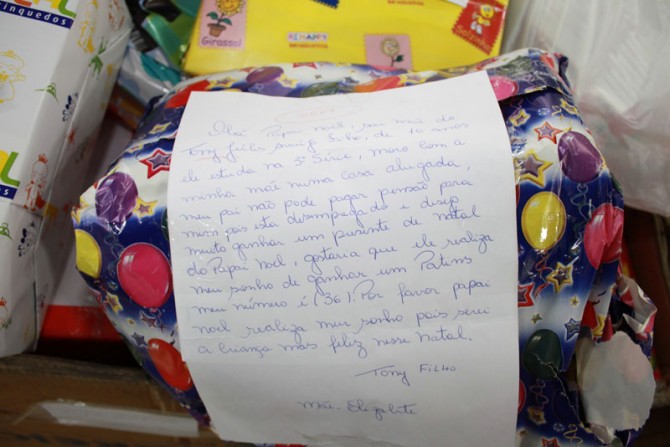 rinquedos
Girassol
BE HAPPY
Olá Papai noel, sou mãe do
Tony Filho Filho, de 10 anos
ele estuda na 3ª Série, moro com a
minha mãe numa casa alugada,
meu pai não pode pagar pensão para
mim pois está desempegado e disejo
muito ganhar um purente de natal
do Papai Noel, gostaria que ele realiza
meu sonho de ganhar um Patins
meu número é (36). Por favor papai
noel realiza meu sonho pois serei
a criança mas feliz nesse natal.
Tony Filho
Mãe. Elizabete